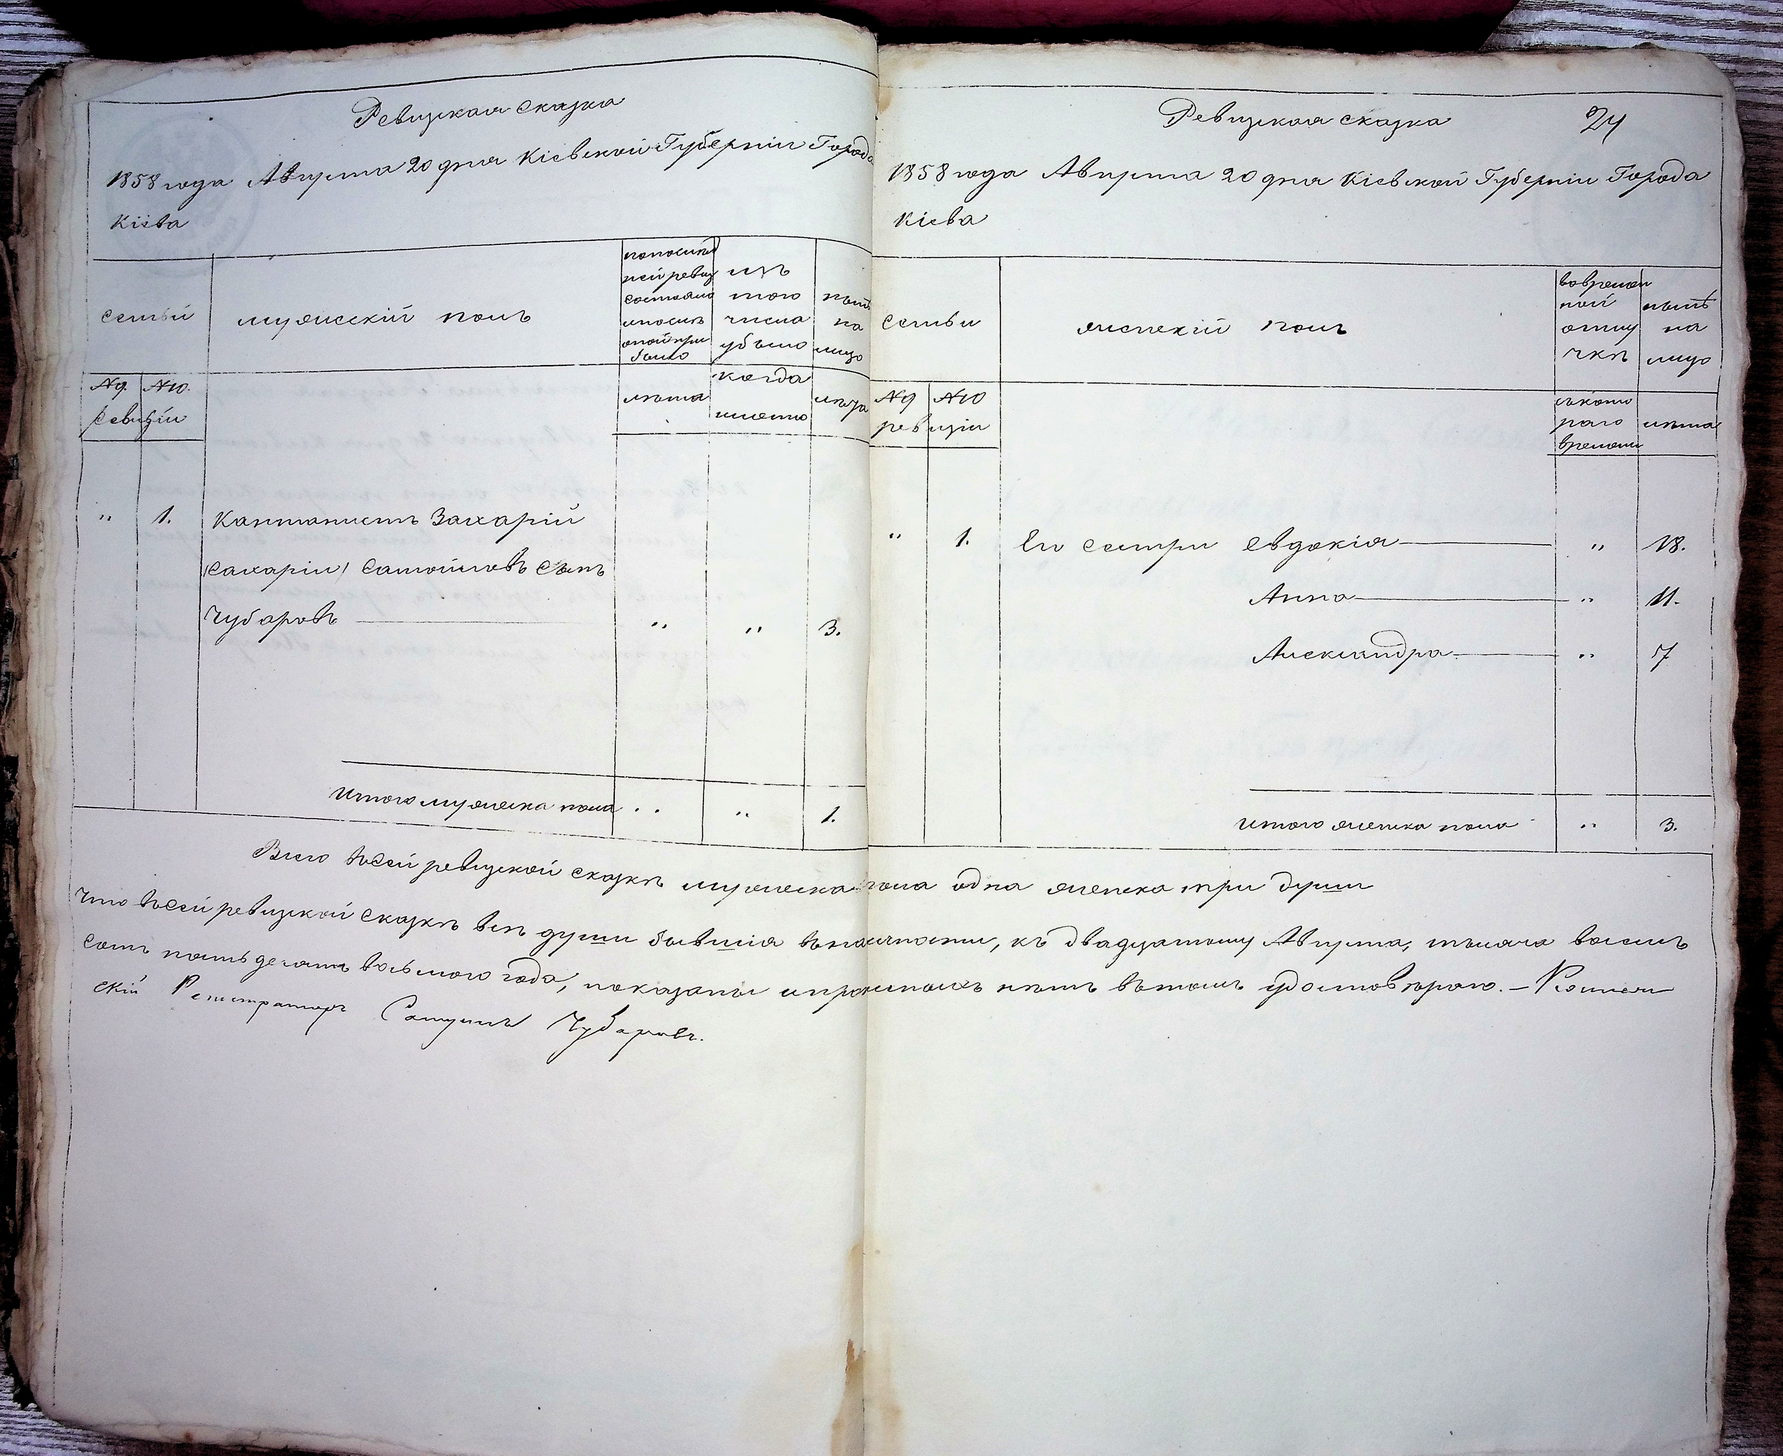 Ревизкая сказка
1858 года Августа 20 дня Кіевской Губерніи Города
Кіева
семьи
мужескій полъ
по послѣд
ней ревиз
состояло
и послѣ
оной при
было
изъ
того
числа
убыло
нынѣ
на
лицо
№9 №10.
ревизіи
лѣта
когда
именно
лѣта
" 1. Кантонистъ Захарій
(Сахарій) Самойловъ сынъ
Чубаровъ " " 3.
Итого мужеска пола " " 1.
Ревизкая сказка 24
1858 года Августа 20 дня Кіевской Губерніи Города
Кіева
семьи
женскій полъ
во времен
ной
отлу
чкѣ
нынѣ
на
лицо
№9 №10
ревизіи
съ кото
раго
времени
лѣта
" 1. Его сестри Евдокія " 18.
Анна " 11.
Александра " 7
Итого женска пола " 3.
Всего въ сей ревизкой сказкѣ мужеска пола одна женска три души
Что въ сей ревизкой сказкѣ всѣ души бывшія въ наличности, къ двадцатому Августа, тысяча восемь
сотъ пятьдесятъ восьмого года, показаны и прописныхъ нѣтъ въ томъ удостовѣряю. – Коллеж
скій Регистраторъ Самуилъ Чубаровъ.